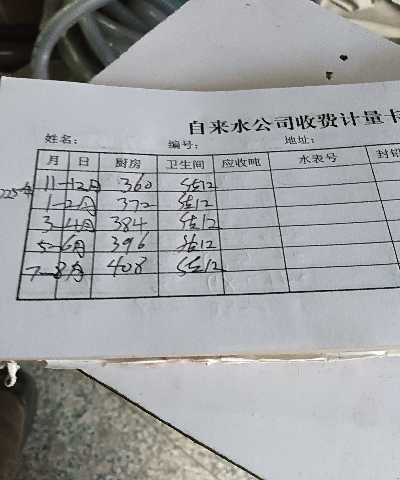 自来水公司收费计量卡
姓名： 编号： 地址：
月 日 厨房 卫生间 应收吨 水表号 封铅
11-12月 360 估12
1-2月 372 估12
3-4月 384 估12
5-6月 396 估12
7-8月 408 估12